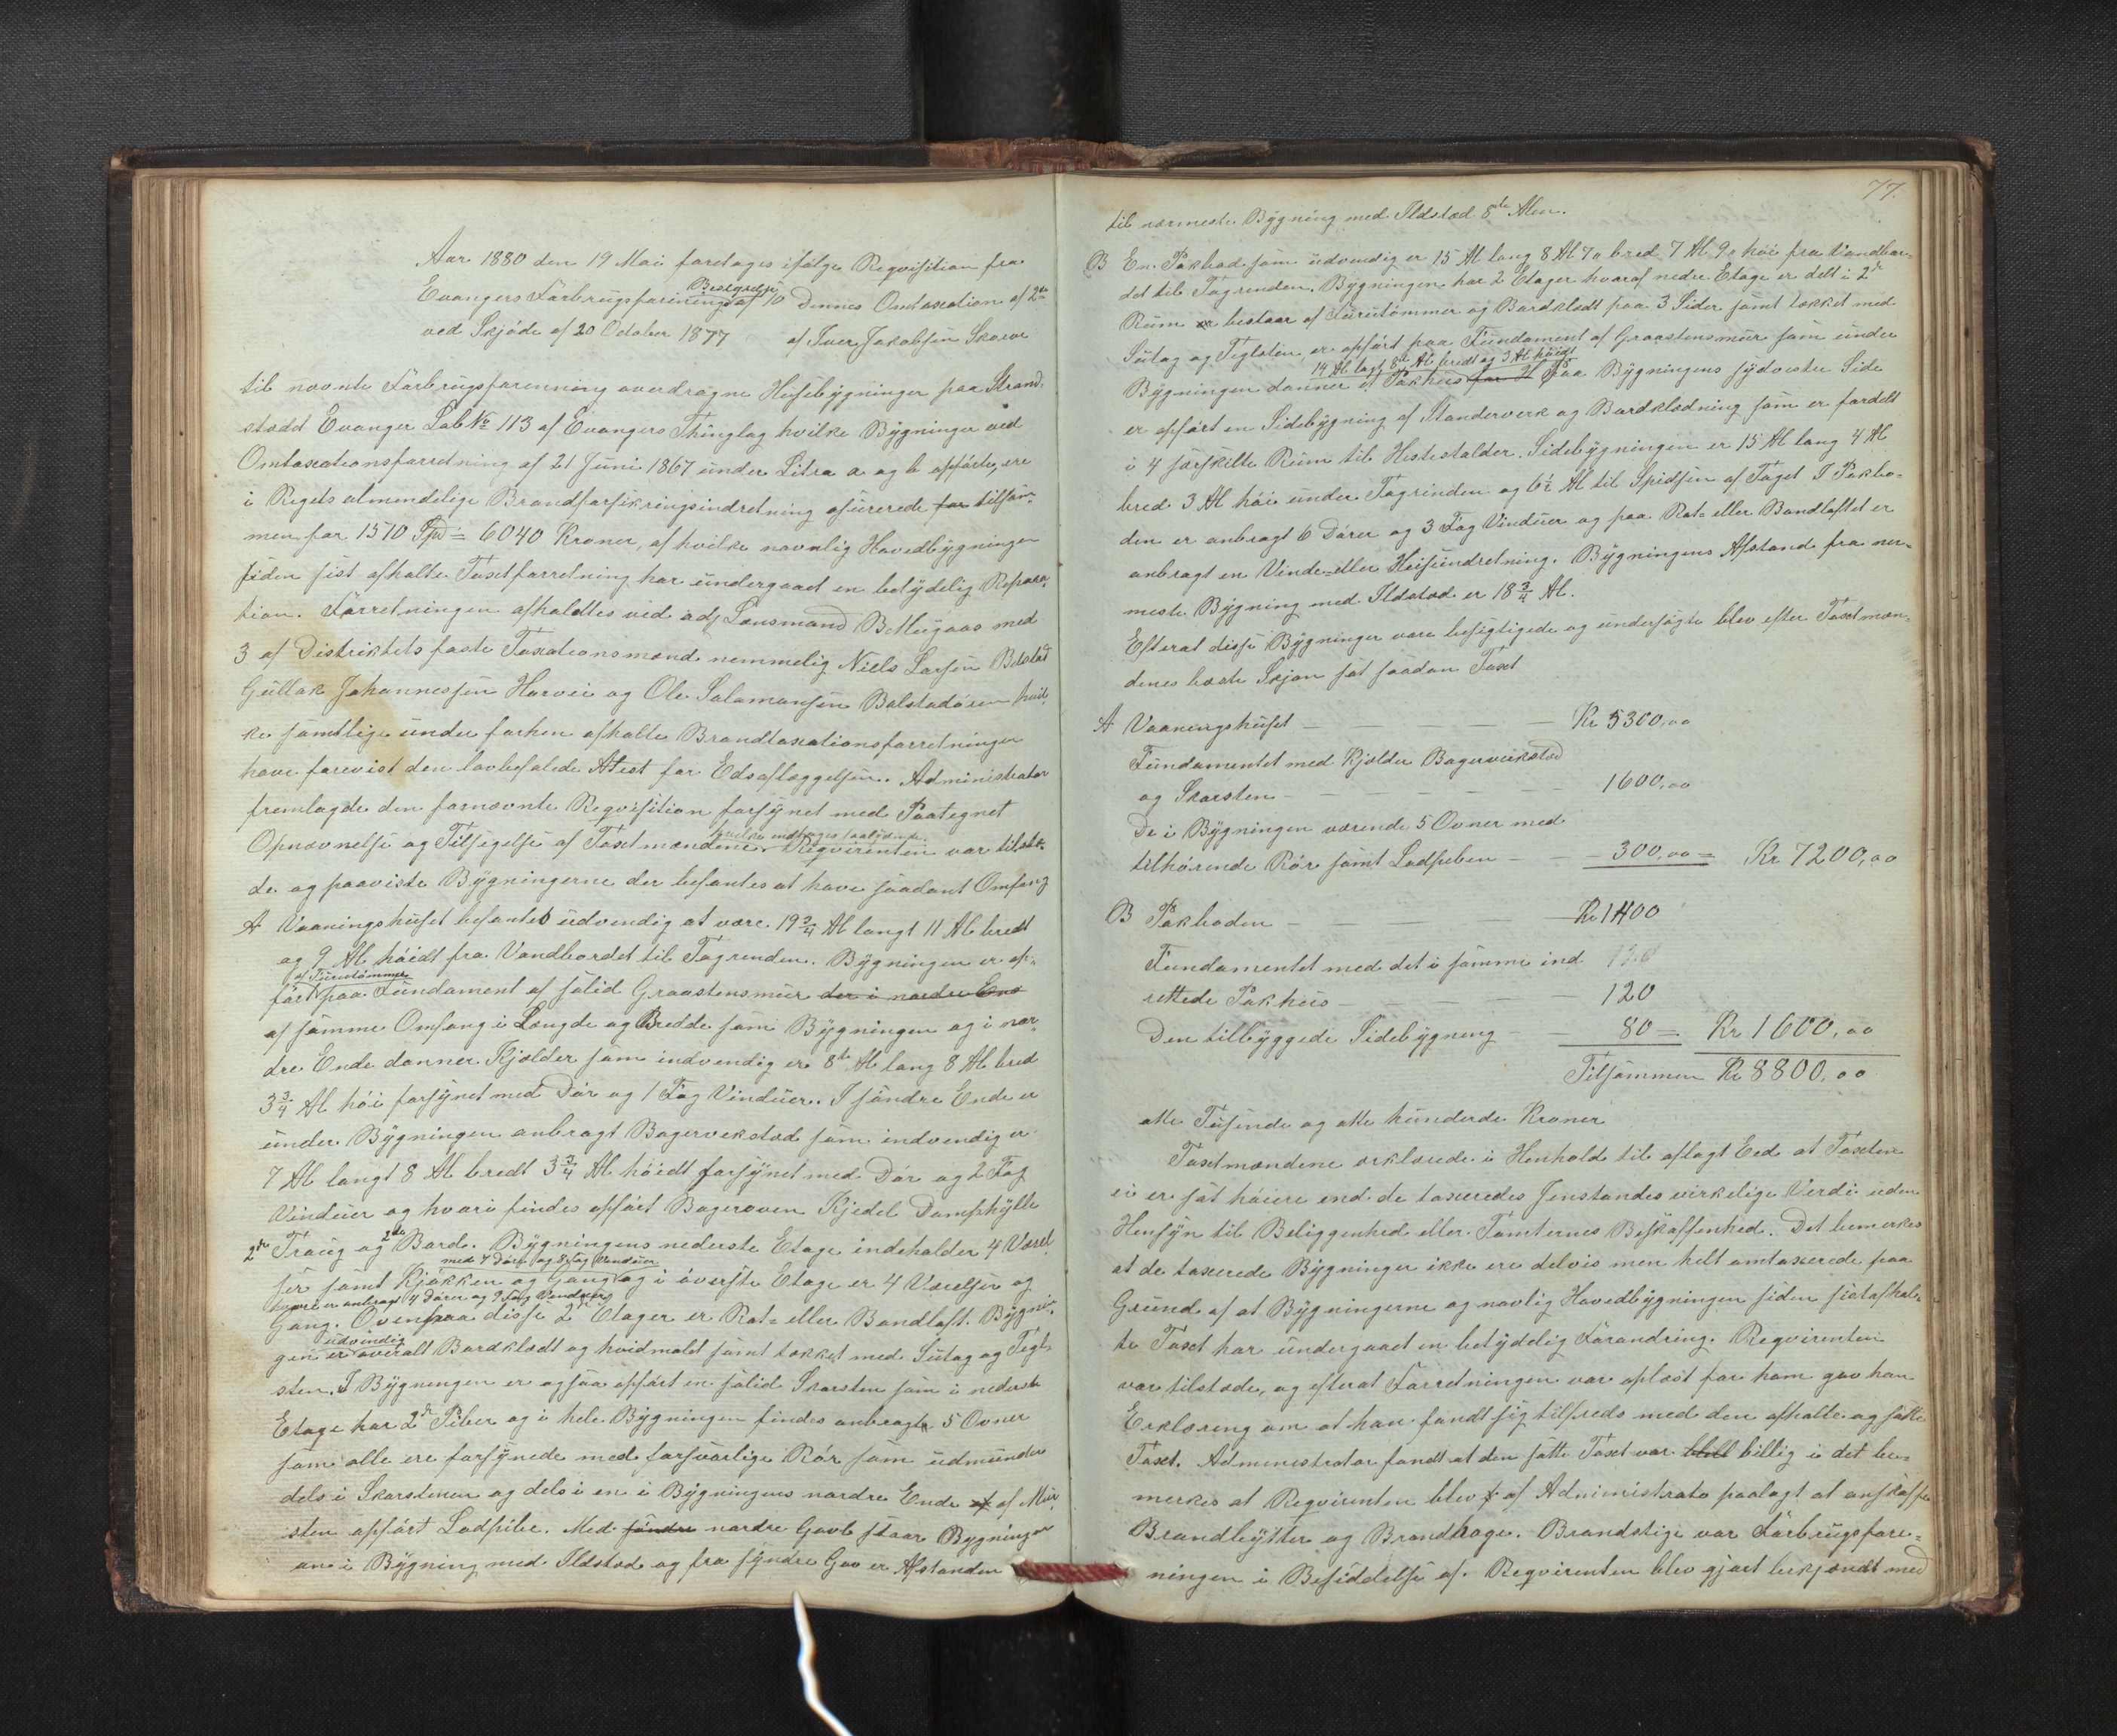 Aar 1880 den 19 Mai foretoges ifølge Reqvisition fra
Evangers Forbrugsforenings Bestyrelse af 10 Dennes Omtaxation af 2de
ved Skjøde af 20 October 1877 af Iver Jakobsen Skorve
til nævnte Forbrugsforenning overdragne Husebygninger paa Strand-
stædd Evanger Løb No 113 af Evangers Thinglag hvilke Bygninger ved
Omtaxationsforretning af 21 Juni 1867 under Litra a og b opførte, ere
i Rigets almindelige Brandforsikringsindretning asurerede for tilsam-
men for 1510 Spd = 6040 Kroner, af hvilke navnlig Hovedbygningen
siden sist afholte Taxtforretning har undergaaet en betydelig Repara-
tion. Forretningen afholdtes ved adj Lensmand B Mugaas med
3 af Distriktets faste Taxationsmænd nemmelig Niels Larsen Bolstad
Gullak Johannessen Horvei og Ole Salamonsen Bolstadøren hvil-
ke samtlige under forhen afholte Brandtaxationsforretninger
have forevist den lovbefalede Atest for Edsaflæggelsen. Administrator
fremlagde den fornævnte Reqvisition forsynet med Paategnet
Opnævnelse og Tilsigelse af Taxtmændene hvilke indtages saalydende. Reqvirenten var tilstæ-
de og paaviste Bygningerne der befantes at have saadant Omfang
A Vaaningshuset befantes udvendig at være 19 3/4 Al langt 11 Al bredt
og 9 Al høidt fra Vandbordet til Tagrenden. Bygningen er op-
ført af Furutømmer paa Fundament af solid Graastensmur der i nordre Ens
af samme Omfang i Længde og Bredde som Bygningen og i nor-
dre Ende danner Kjælder som indvendig er 8te Al lang 8 Al bred
3 3/4 Al høi forsynet med Dør og 1 Fag Vinduer. I søndre Ende er
under Bygningen anbragt Bagerverksted som indvendig er
7 Al langt 8 Al bredt 3 3/4 Al høidt forsynet med Dør og 2 Fag
Vinduer og hvori findes opført Bagerovn Kjedel Damphylle
2de Traug og 2de Bord. Bygningens nederste Etage indeholder 4 Værel-
ser samt Kjøkken og Gang med 7 Døre og 8 Fag Vinduer og i øverste Etage er 4 Værelser og
Gang. hvori er anbragt 4 Dører og 9 Fag Vinduer Ovenpaa disse 2de Etager er Rot- eller Bandloft. Bygnin-
gen er udvindig overalt Bordklædt og hvidmalet samt tækket med Sutag og Tegl-
sten. I Bygningen er ogsaa opført en solid Skorsten som i nederste
Etage har 2de Piber og i hele Bygningen findes anbragte 5 Ovner
som alle ere forsynede med forsvarlige Rør som udmunder
dels i Skorstenen og dels i en i Bygningens nordre Ende af af Mur-
sten opført Lodpibe. Med søndre nordre Gavl staar Bygningen
an i Bygning med Ildsted og fra syndre Gav er Afstanden
77.
til nærmeste Bygning med Ildsted 8te Alen.
B En Pakbod som udvendig er 15 Al lang 8 Al 7" bred 7 Al 9" høi fra Vandbor-
det til Tagrenden. Bygningen har 2 Etager hvoraf nedre Etage er delt i 2de
Rum er bestaar af Furutømmer og Bordklædt paa 3 Sider samt tækket med
Sutag og Teglsten, er opført paa Fundament af Graastensmur som under
Bygningen danner et 14 Al lagt 8te Al bredt og 3 Al høidt Pakhus for H Paa Bygningens sydvestre Side
er opført en Sidebygning af Standerverk og Bordklædning som er fordelt
i 4 særskilte Rum til Hestestalder. Sidebygningen er 15 Al lang 4 Al
bred 3 Al høi under Tagrinden og 6 1/2 Al til Spidsen af Taget I Pakbo-
den er anbragt 6 Dører og 3 Fag Vinduer og paa Rot- eller Bandloftet er
anbragt en Vinde- eller Heiseindretning. Bygningens Afstand fra nær-
meste Bygning med Ildsted er 18 3/4 Al.
Efterat disse Bygninger vare besigtigede og undersøgte blev efter Taxtmæn-
denes bæste Skjøn sat saadan Taxt
A Vaaningshuset — Kr 5300,00
Fundamentet med Kjælder Bagerverksted
og Skorsten — 1600,00
De i Bygningen værende 5 Ovner med
tilhørende Rør samt Lodpiben — 300,00 = Kr 7200,00
B Pakboden — Kr 1400
Fundamentet med det i samme ind
rettede Pakhus — 120
Den tilbyggede Sidebygning — 80 = Kr 1600,00
Tilsammen Kr 8800,00
otte Tusinde og otte hunderde Kroner
Taxtmændene erklærede i Henhold til aflagt Eed at Taxten
ei er sat høiere end de taxeredes Jenstandes virkelige Verdi uden
Hensyn til Beliggenhed eller Tomternes Beskaffenhed. Det bemerkes
at de taxerede Bygninger ikke ere delvis men helt omtaxerede paa
Grund af at Bygningerne og navlig Hovedbygningen siden sist afhol-
te Taxt har undergaaet en betydelig Forandring. Reqvirenten
var tilstæde, og efterat Forretningen var oplæst for ham gav han
Erklæring om at han fandt sig tilfreds med den afholte og satte
Taxt. Administrator fandt at den satte Taxt var billig i det be-
merkes at Reqvirenten blev af Administrato paalagt at anskaffe
Brandbytter og Brandhage. Brandstige var Forbrugsfore-
ningen i Besiddelse af. Reqvirenten blev gjort bekjændt med